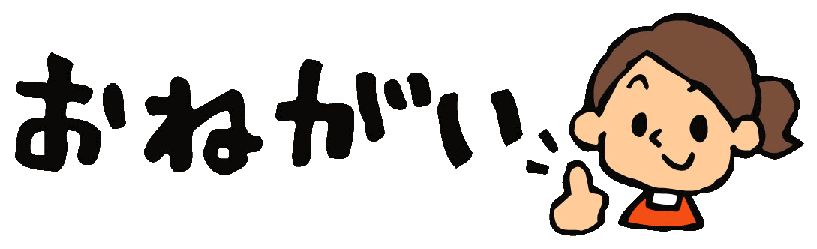 おねがい